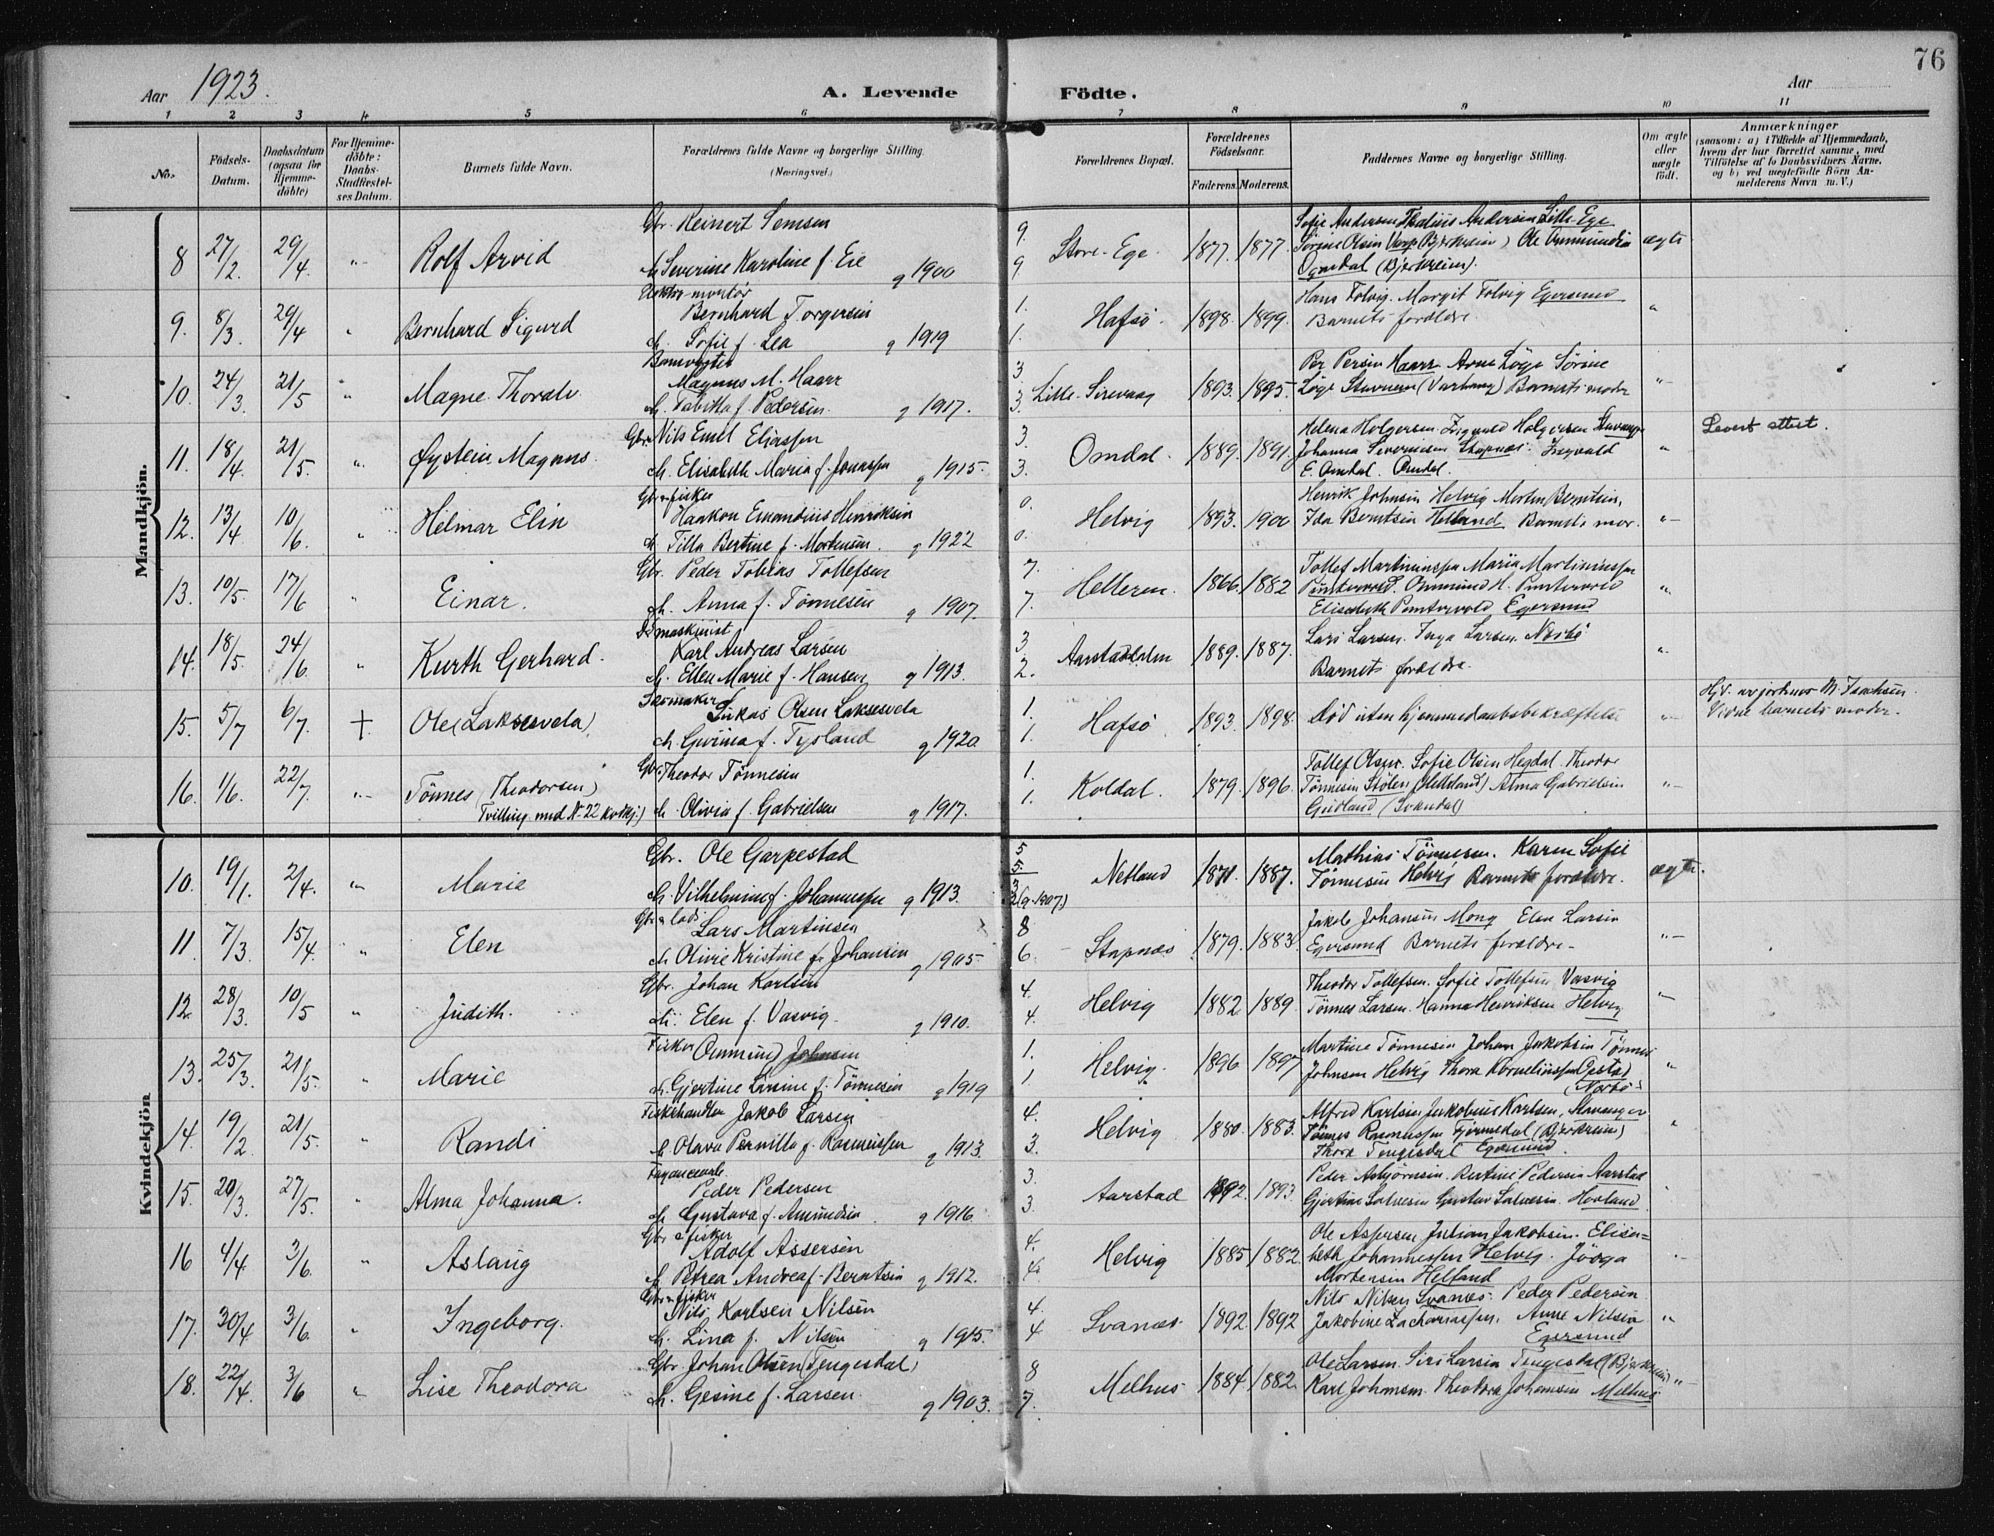 76
Aar 1923.
A. Levende Födte.
Aar
1 2 3 4 5 6 7 8 9 10 11
No. Födsels-Datum. Daabsdatum (ogsaa for Hjemmedöbte) For Hjemmedöbte: Daabs-Stadfæstelses Datum. Barnets fulde Navn. Forældrenes fulde Navne og borgerlige Stilling. (Næringsvei.) Forældrenes Bopæl. Forældrenes Födselsaar. Faderens. Moderens. Faddernes Navne og borgerlige Stilling. Om ægte eller uægte födt. Anmærkninger (saasom: a) i Tilfælde af Hjemmedaab, hvem der har forrettet samme, med Tilföielse af to Daabsvidners Navne, og b) ved uægtefödte Börn Anmelderens Navn m. V.)
Mandkjön.
Gbr. Reinert Semsen
8 27/2 29/4 " Rolf Arvid
Severine Karoline f. Eie g 1900
9 9 Store-Ege 1877. 1877. Sofie Andersen Andersen Lille Ege
Sørine Olsen (Bjerkreim) Ole
(Bjerkreim). ægte
Elektro-montør
Bernhard Torgersen
9. 8/3 29/4 " Bernhard Sigurd
Sofie f. Lea g 1919
1. 1. Hafsø. 1898. 1899. Hans Folvig. Margit Folvig Egersund
Barnets forældre. "
Magnus M. Haarr
10. 24/3. 21/5 " Magne Thoralv
Tabitha f. Pedersen g 1917.
3 3. Lille Sirevaag 1893. 1895. Per Persen Haarr Arne Løge Sørine
Løge (Varhaug) Barnets moder "
Gbr. Nils Emil Eliassen
11. 18/4 21/5. " Øystein Magnus.
Elisabeth Maria f. Jonassen g 1915.
3. 3. Omdal. 1889. 1891. Helena Holgersen Sigvald Holgersen
Johanna Severinsen Stapnæs. Ingvald
E. Omdal. Omdal. " Levert attest.
Gbr + fisker
Haakon Henriksen
12. 13/4 10/6. " Helmar Elin
Tilla Bertine f. Mortensen. g 1922
0. 0. Helvig 1893. 1900 Henrik Johnsen Helvig Morten Berntsen,
Ida Berntsen Helland Barnets mor. "
Gbr. Peder Tobias Tollefsen
13. 10/5. 17/6 " Einar.
Anna f. Tønnesen g 1907.
7. 7. Helleren. 1866. 1882 Tollef Martinussen Maria Martinussen
Puntervold. Ommund H. Puntervold
Elisabeth Puntervold Egersund "
maskinist
Karl Andreas Larsen
14. 18/5. 24/6 " Kurth Gerhard.
Ellen Marie f. Hansen g 1913.
3. 2. Aarstadholm 1889. 1887. Lars Larsen. Inga Larsen Nærbø
Barnets forældre. "
Skomaker Lukas Olsen Laksesvela
15. 5/7 6/7. + Ole (Laksesvela)
f. Tysland g 1920.
1. 1. Hafsø 1893. 1898. Død uten hjemmedaabsbekræftelse " Hj.d. av jordmor M. Isachsen.
Vidne barnets moder.
Gbr. Theodor Tønnesen
16. 1/6. 22/7. " Tønnes (Theodorsen)
Tvilling med N 22 kvdkj.)
Olivia f. Gabrielsen g 1917.
1. 1. Koldal. 1879. 1896. Tollef Olsen. Sofie Olsen Hegdal. Theodor
Tønnesen Stølen (Helleland) Alma Gabrielsen
Gudland (Sokndal) "
Kvindekjön
Gbr. Ole Garpestad
10. 19/1. 2/4. " Marie
Vilhelmine f. Johannessen g 1913.
5 5. 3 2 (g. 1907.) Netland 1871. 1887. Mathias Tønnesen. Karen Sofie
Tønnesen Helvig Barnets forældre. ægte.
Lars Martinsen
11 7/3. 15/4. " Elen
Olivie Kristine f. Johansen g 1905.
8 6 Stapnæs 1879. 1883. Jakob Johansen Mong Elen Larsen
Egersund Barnets forældre. "
Gbr. Johan Karlsen
12. 28/3. 10/5 " Judith.
Elen f. Vasvig. g 1910.
4. 4. Helvig 1882 1889 Theodor Tollefsen. Sofie Tollefsen Vasvig
Tønnes Larsen. Hanna Henriksen Helvig "
Fisker Ommund Johnsen
13. 25/3. 21/5. " Marie
Gjertine Larsine f. Tønnesen g 1919
1. 1 Helvig. 1896 1897 Martine Tønnesen Johan Jakobsen Tønnes
Johnsen Helvig Thora Kornelinssen
(Nærbø) "
Fiskehandler Jakob Larsen
14. 19/2. 21/5. " Randi
Olava Pernilla f. Rasmussen g 1913.
4. 3. Helvig 1880. 1883. Alfred Karlsen Jakobine Karlsen, Stavanger
Tønnes Rasmussen (Bjerkreim)
Thora Tengesdal Egersund. "
Peder Pedersen
15. 20/3. 27/5. " Alma Johanna.
Gustava f. g 1916.
3. 3. Aarstad 1892. 1893. Peder Asbjørnsen. Bertine Pedersen Aarstad
Gjertine Salvesen Gustav Salvesen Hovland "
Gbr. & fisker
Adolf Assersen
16 4/4 3/6. " Aslaug
Petrea Andrea f. Berntsen g 1912.
4. 4. Helvig 1885 1882. Ole Aspersen Julian Jakobsen. Elisa=
beth Johannessen Helvig.
Mortensen Helland "
Gbr + fisker
Nils Karlsen Nilsen
17. 30/4 3/6. " Ingeborg.
Lina f. Nilsen g 1915.
4. 4 Svanæs. 1892. 1892 Nils Nilsen Svanæs. Peder Pedersen
Jakobine Zachariassen. Anne Nilsen
Egersund "
Gbr. Johan Olsen (Tengesdal)
18. 22/4. 3/6 " Lise Theodora
Gesine f. Larsen. g 1903.
8 7. Melhus 1884. 1882. Ole Larsen. Siri Larsen Tengesdal (Bjerkreim)
Karl Johansen. Theodora Johansen Melhus "